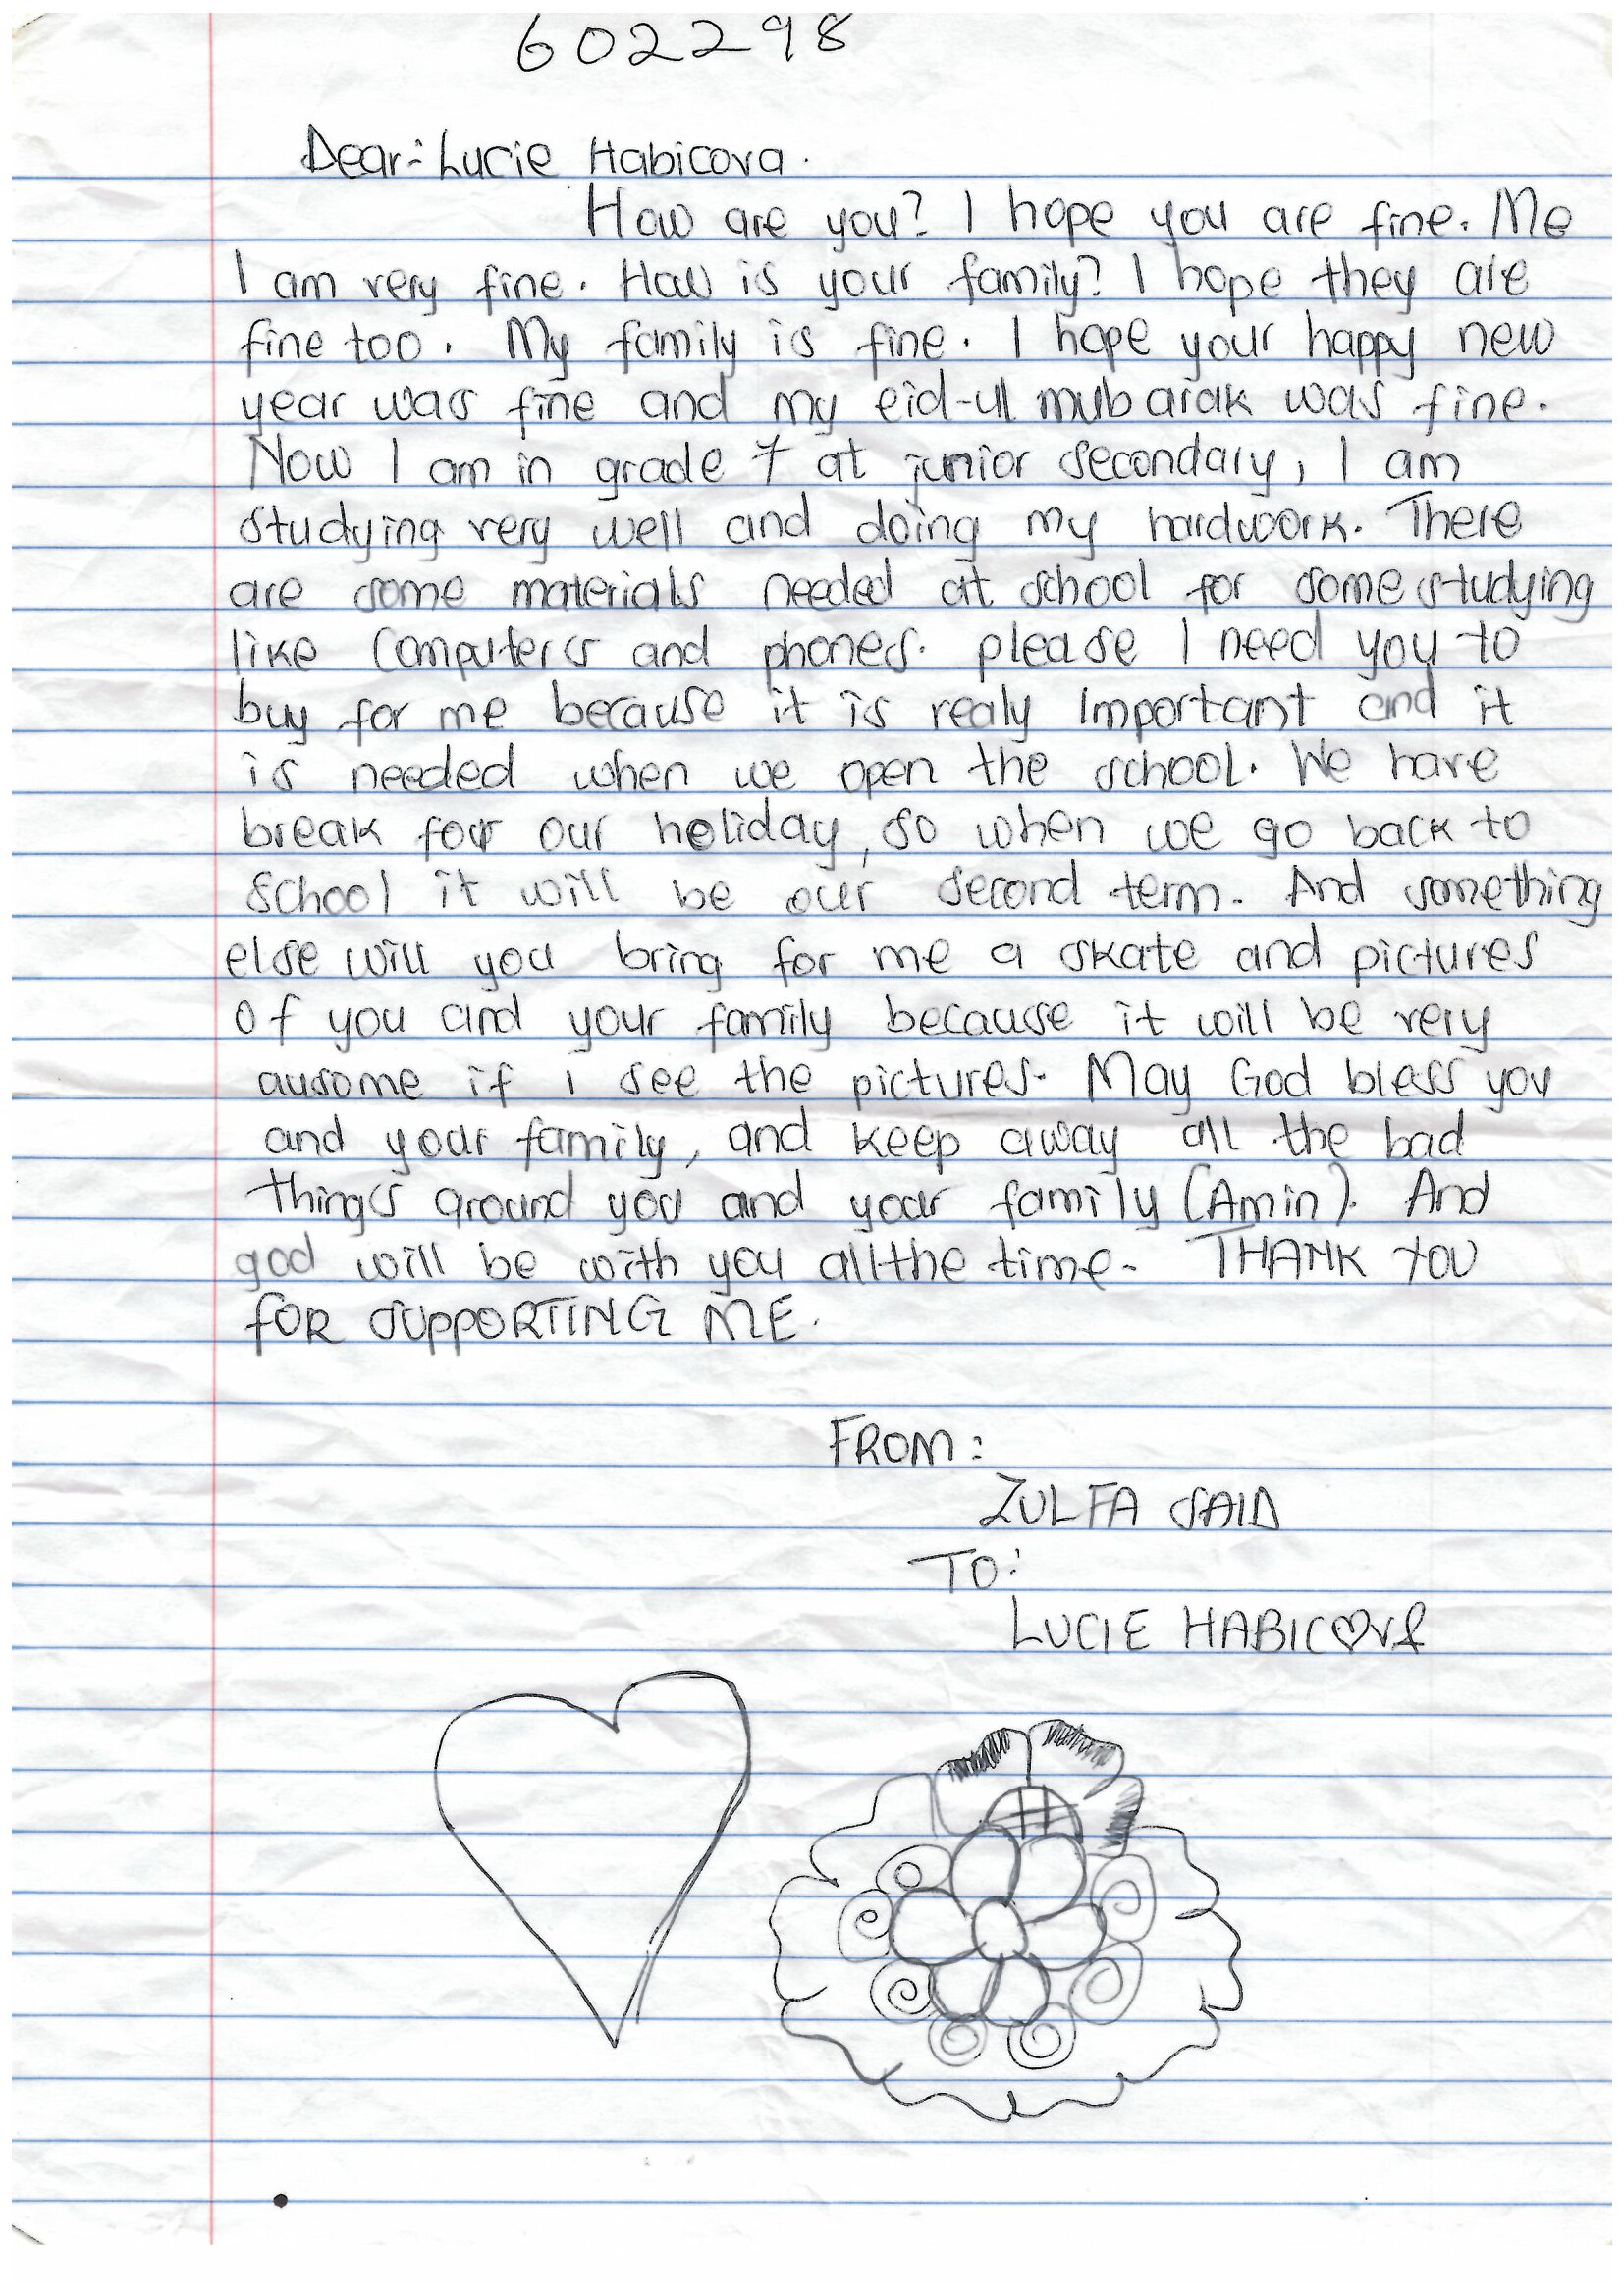 602298
Dear:- Lucie Habicova.
How are you? I hope you are fine. Me
I am very fine. How is your family? I hope they are
fine too. My family is fine. I hope your happy new
year was fine and my eid-ul mubarak was fine.
Now I am in grade 7 at junior secondary, I am
studying very well and doing my hardwork. There
are some materials needed at school for some studying
like computers and phones. please I need you to
buy for me because it is realy important and it
is needed when we open the school. We have
break for our holiday, so when we go back to
school it will be our second term. And something
else will you bring for me a skate and pictures
of you and your family because it will be very
ausome if i see the pictures. May God bless you
and your family, and keep away all the bad
things around you and your family (Amin). And
god will be with you all the time. THANK YOU
FOR SUPPORTING ME.
FROM:
ZULFA SAID
TO:
LUCIE HABIC♡VA